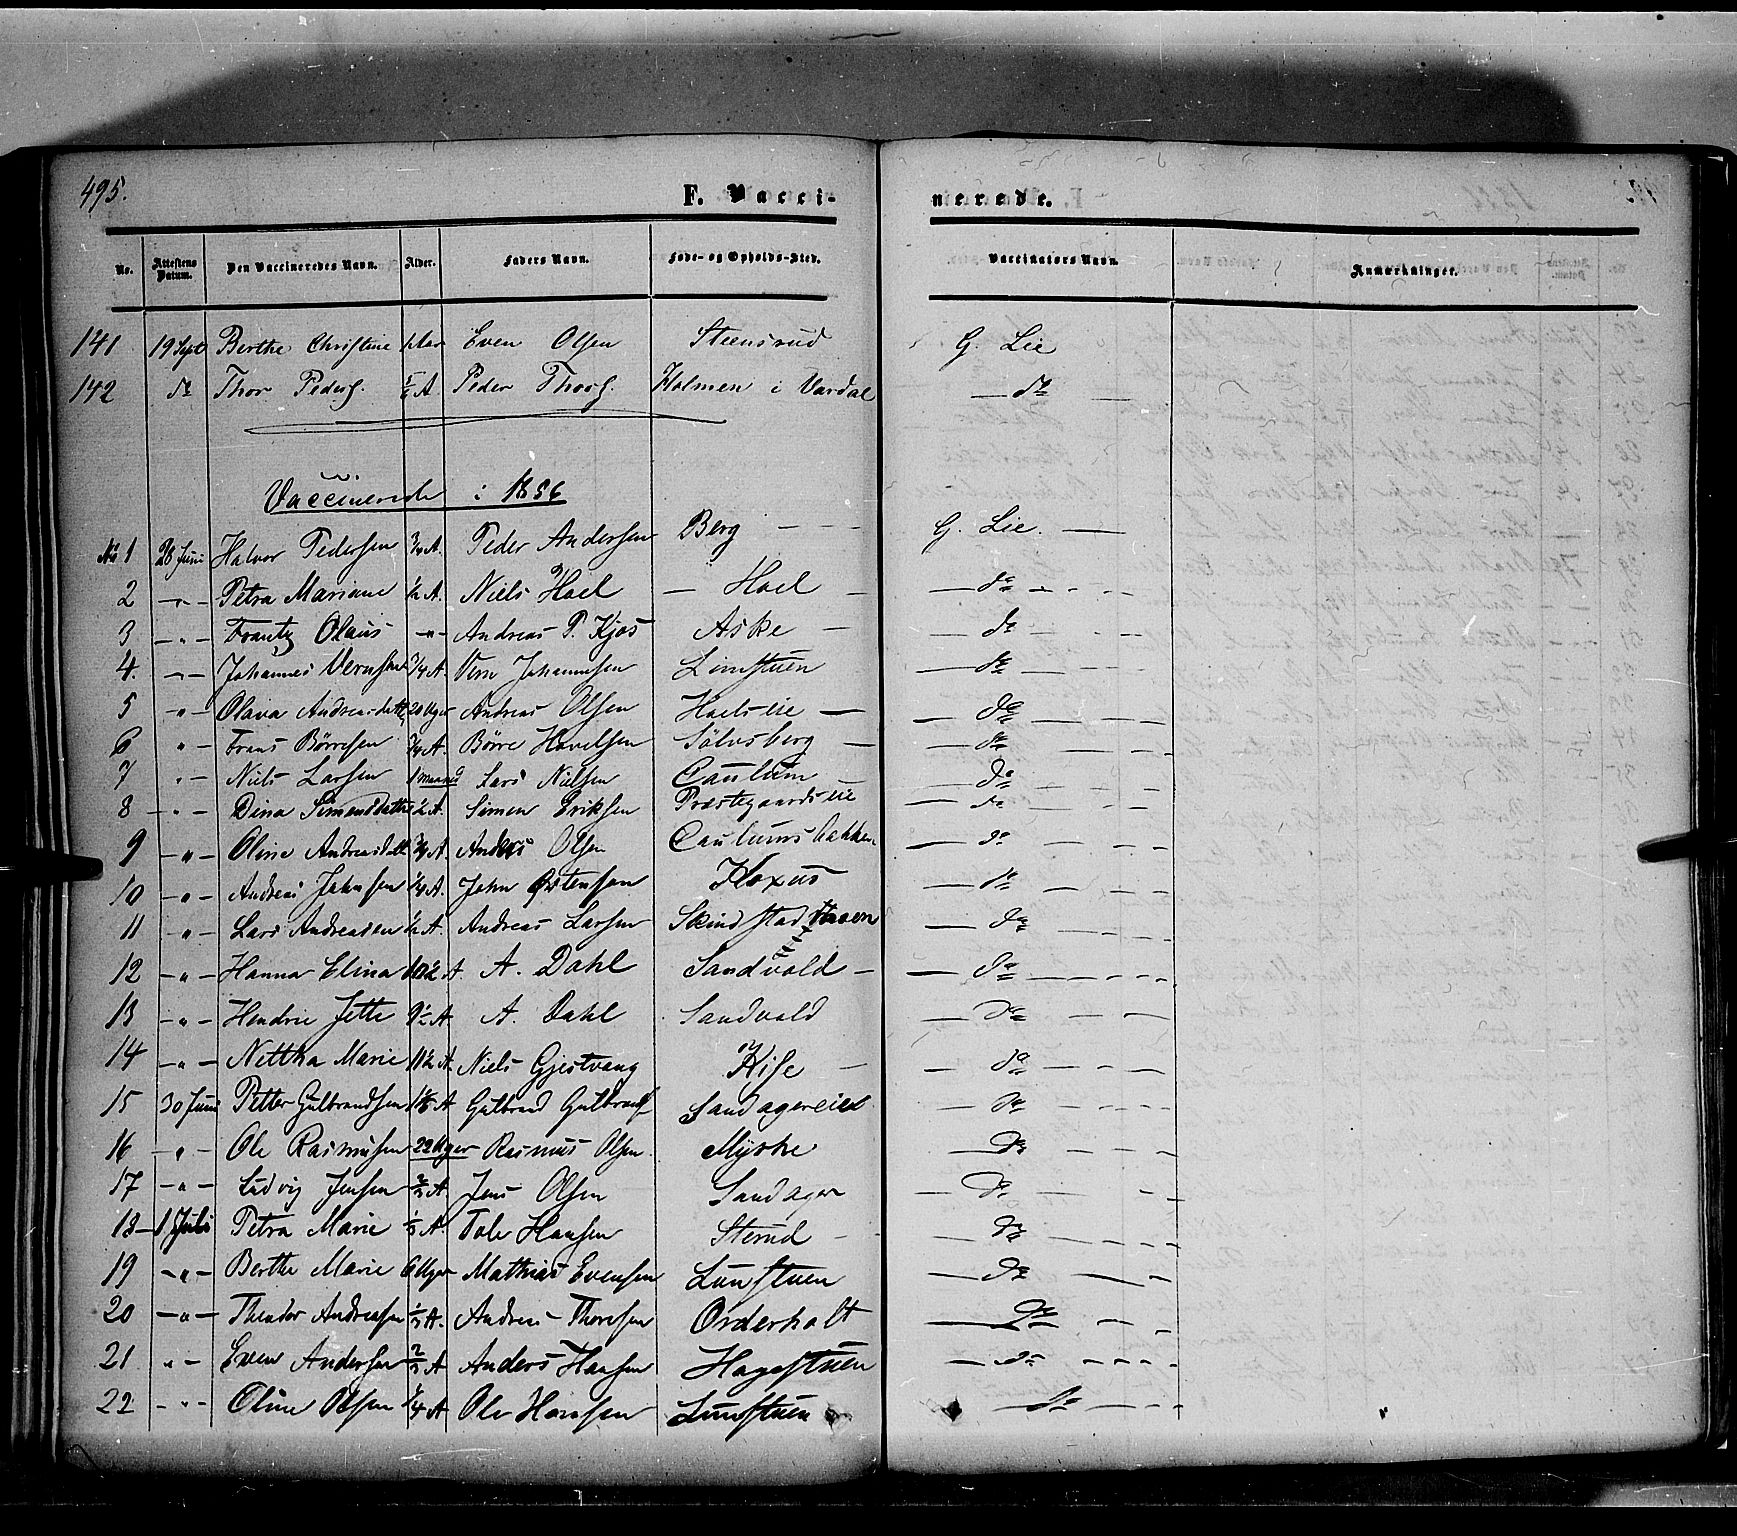 495.
F. Vacci-
nerede.
No. Attestens Datum. Den Vaccineredes Navn. Alder. Faders Navn. Føde- og Opholds-Sted. Vaccinators Navn. Anmærkninger.
141 19 Sept Berthe Christine 1 Aar Even Olsen Steensrud G. Lie
142 do Thor Peders. A. Peder Thors. Holmen i Vardal do
Vaccinerede i 1856
No 1 28 Juni Halvor Pedersen 3/4 A. Peder Andersen Berg G. Lie.
2 " Petra Mariane 1/2 A. Niels Hoel Hoel do
3 " Frantz Olaus " Andreas P. Kjos Aske do
4. " Johannes 3/4 A. Vern Johannesen Limstuen do
5 " Olava Andreasdatt. 20 Uger Andreas Olsen Hoelseie do
6 " Frans Børresen 3/4 A. Børre Hovelsen Sölvsberg do
7 " Niels Larsen 1 maaned Lars Nielsen Caulum do
8 " Dina Simensdatter 1/2 A. Simen Eriksen Præstegaardseie do
9 " Oline Andreasdatt 3/4 A. Anders Olsen Caulumsbakken do
10 " Andreas Johnsen 1/4 A. John Østensen Kloxus do
11 " Lars Andreasen 1/2 A. Andreas Larsen Skindstad do
12 " Hanna Elina A A. Dahl Sandvold do
13 " Hendrie Jette 9 1/2 A A. Dahl Sandvold do
14 " Nettka Marie 11 1/2 A. Niels Gjestvang Hise do
15 30 Juni Petter Gulbrandsen A Gulbrand Gulbrands. Sandagereiet do
16 " Ole Rasmusen 22 Uger Rasmus Olsen. Myske do
17 " Ludvig Jensen 2/3 A Jens Olsen Sandager do
18 1 Juli Petra Marie 1/3 A. Tole Hansen Sterud do
19 " Berthe Marie 6 Uger Mathias Evensen Lunstuen do
20 " Theodor Andreasen 1/3 A. Andreas Thoresen Orderholt do
21 " Even Andersen 2/3 A Anders Hansen Hagestuen do
22 " Oline Olsen 1/4 A Ole Hansen Lunstuen do